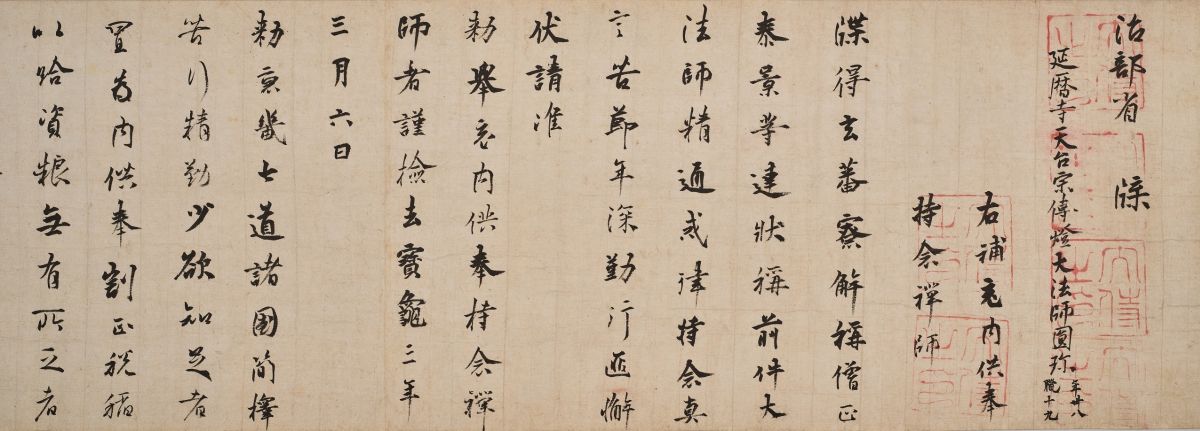 治部省 牒
延暦寺天台宗傳燈大法師圓珎 年卅八 臈十九
右補充内供奉
持念禅師
牒得玄蕃寮解稱僧正
泰景等連状稱前件大
法師精通戒律持念真
言苦節年深勤行匪懈
伏請准
勅舉充内供奉持念禅
師者謹檢去寳龜三年
三月六日
勅京畿七道諸國簡擇
苦行精勤少欲知足者
置為内供奉割正税稲
以給資粮無有所乏者